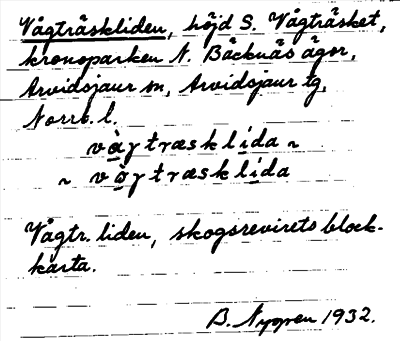 Vågträskliden, höjd S. Vågträsket,
kronoparken N. Bäcknäs ägor,
Arvidsjaur sn, Arvidsjaur tg,
Norrb. l.
våγtræsklida ~
~ våγtræsklida
Vågtr. liden, skogsrevirets block-
karta.
B. Nygren 1932.